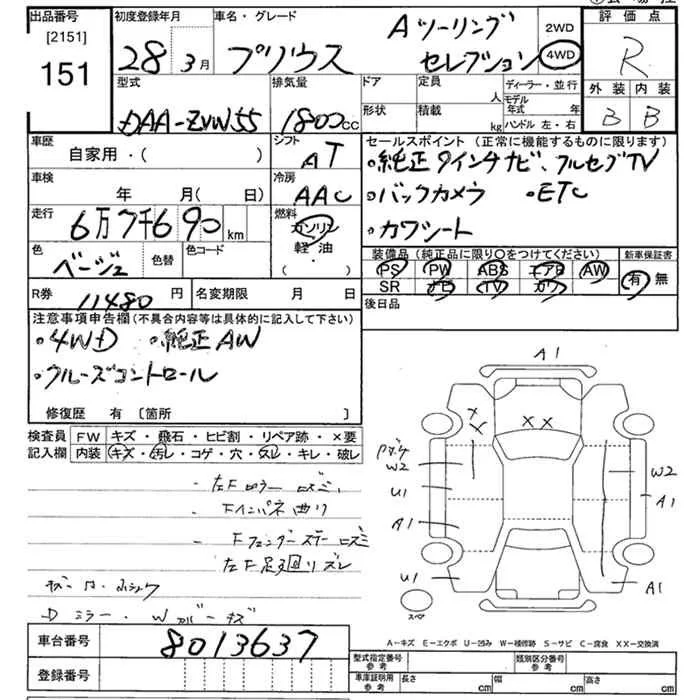 出品番号 初度登録年月 車名・グレード 評価点
[2151]
151
28 3月 プリウス Aツーリング セレクション 2WD 4WD R
型式 排気量 ドア 定員 人 ディーラー・並行 外装 内装
DAA-ZVW55 1800cc 形状 積載 kg モデル年式 年 ハンドル 左・右 B B
車歴 自家用・( ) シフト AT
セールスポイント (正常に機能するものに限ります)
・純正9インチナビ、フルセグTV
・バックカメラ ・ETC
・カワシート
車検 年 月(日) 冷房 AAC
走行 6万7千690km 燃料 ガソリン 軽油 ・( )
色 ベージュ 色替 色コード
装備品 (純正品に限り○をつけてください) 新車保証書
PS PW ABS エアB AW 有・無
SR ナビ TV カワ
R券 11480円 名変期限 月 日
後日品
注意事項申告欄(不具合内容等は具体的に記入して下さい)
・4WD ・純正AW
・クルーズコントロール
修復歴 有 [箇所 ]
検査員 記入欄
FW キズ・飛石・ヒビ割・リペア跡・×要
内装 キズ・汚レ・コゲ・穴・スレ・キレ・破レ
・Fインパネ曲り
左F足廻リズレ
Dミラー・Wカバーキズ
A1
X X XX
W2 W2
U1 A1
A1
U1 A1
スペア
A-キズ E-エクボ U-凹み W-補修跡 S-サビ C-腐食 XX-交換済
車台番号 8013637
登録番号
型式指定番号 参考 類別区分番号 参考
車庫証明用 参考 長さ cm 幅 cm 高さ cm